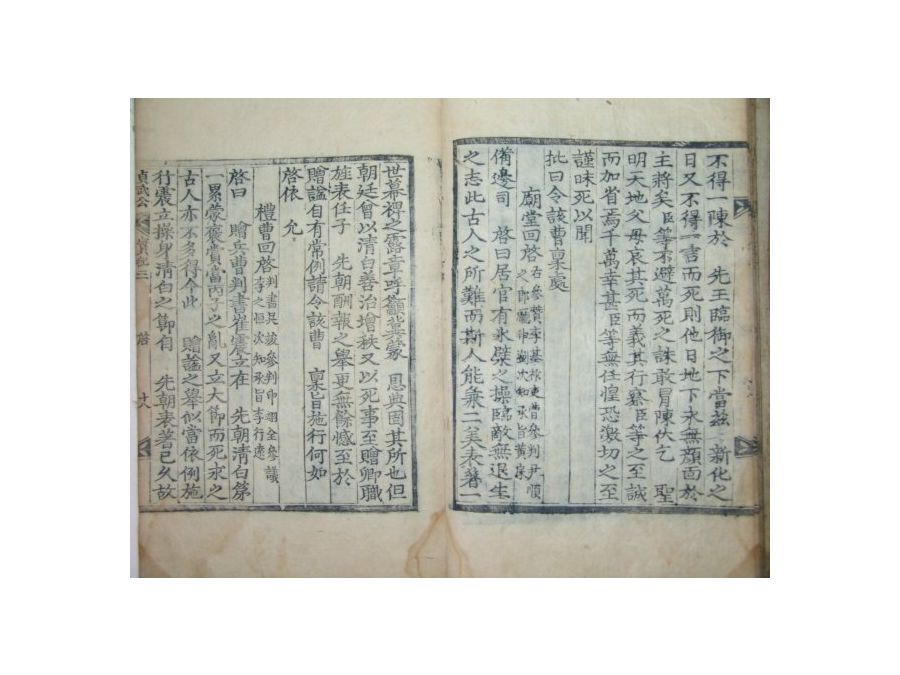 不得一陳於 先王臨御之下當兹 新化之
日又不得一言而死則他日地下永無顔面於
主將矣臣等不避萬死之誅敢冒陳伏乞 聖
明天地父母哀其死而義其行察臣等之至誠
而加省焉千萬幸甚臣等無任惶恐激切之至
謹昧死以聞
批曰令該曹稟處
廟堂回啓
備邊司 啓曰居官有氷檗之操臨敵無退生
之志此古人之所難而斯人能兼二美表著一
世幕裨之露章呼籲冀蒙 恩典固其所也但
朝廷曾以清白善治增秩又以死事至贈卿職
旌表任子 先朝酬報之擧更無餘憾至於
贈諡自有常例請令該曹 稟旨施行何如
啓依 允
禮曹回啓
啓曰 贈兵曹判書崔震立在 先朝清白第
一累蒙褒賞當丙子之亂又立大節而死求之
古人亦不多得今此 贈諡之擧似當依例施
行震立操身清白之節自 先朝表著已久故
貞武公